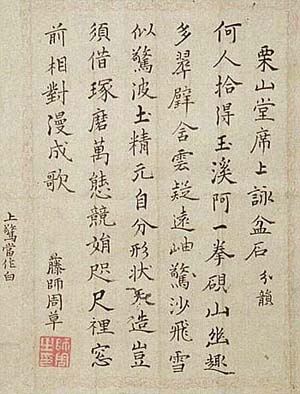 栗山堂席上詠盆石 分韻
何人拾得玉溪阿一拳硯山幽趣
多翠壁含雲疑遠岫驚沙飛雪
似驚波土精元自分形狀天造豈
須借琢磨萬態競妍咫尺裡窓
前相對漫成歌
藤師周草
上驚當作白